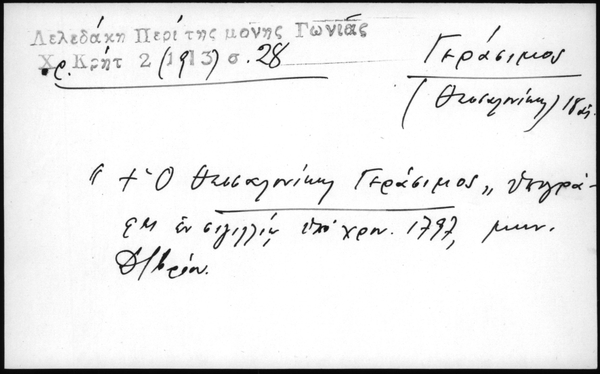 Δελεδάκη Περί της μονης Γωνιάς
Χρ. Κρήτ 2 (1913) σ. 28
Γεράσιμος
(Θεσσαλονίκης) 18 αι.
"+ Ὁ Θεσσαλονίκης Γεράσιμος„ ὑπογρά-
φει ἐν σιγιλλίῳ ὑπό χρον. 1797, μην.